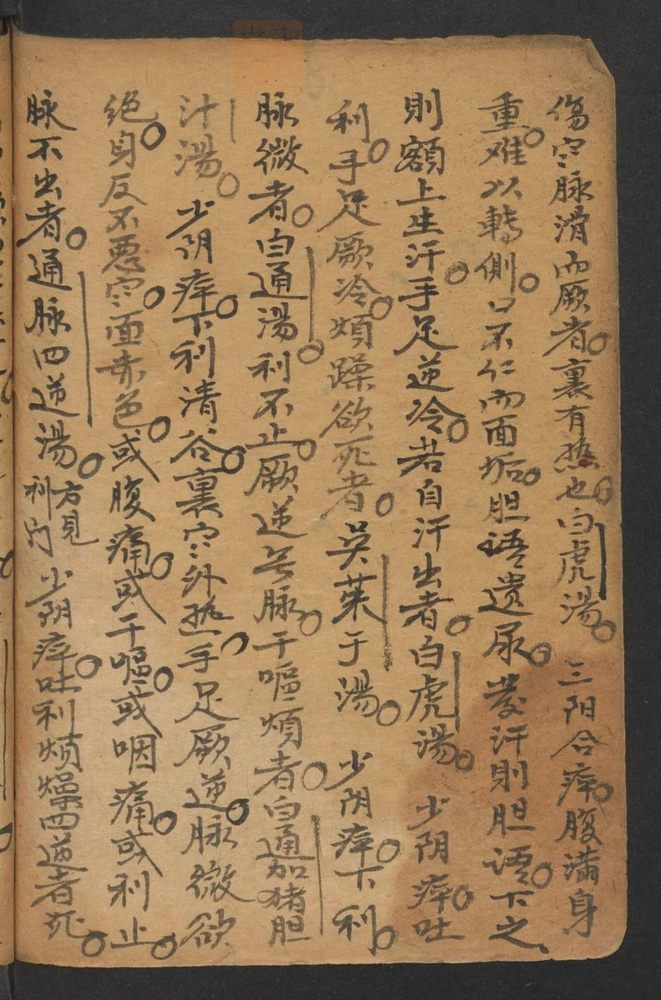 傷寒脉滑而厥者。裏有热也。白虎湯。三阳合病。腹满身
重。难以轉側。口不仁而面垢。胆语遗尿。發汗則胆语。下之、
則額上生汗。手足逆冷。若自汗出者。白虎湯。少阴病。吐
利。手足厥冷。煩躁欲死者。吴茱于湯。少阴病。下利。
脉微者。白通湯。利不止。厥逆無脉。干嘔煩者。白通加猪胆
汁湯。少阴病。下利清谷。裏寒外热。手足厥逆。脉微欲
绝。身反不悪寒。面赤色。或腹痛。或干嘔。或咽痛。或利止。
脉不出者。通脉四逆湯。方見利门 少阴病。吐利烦燥四逆者死。